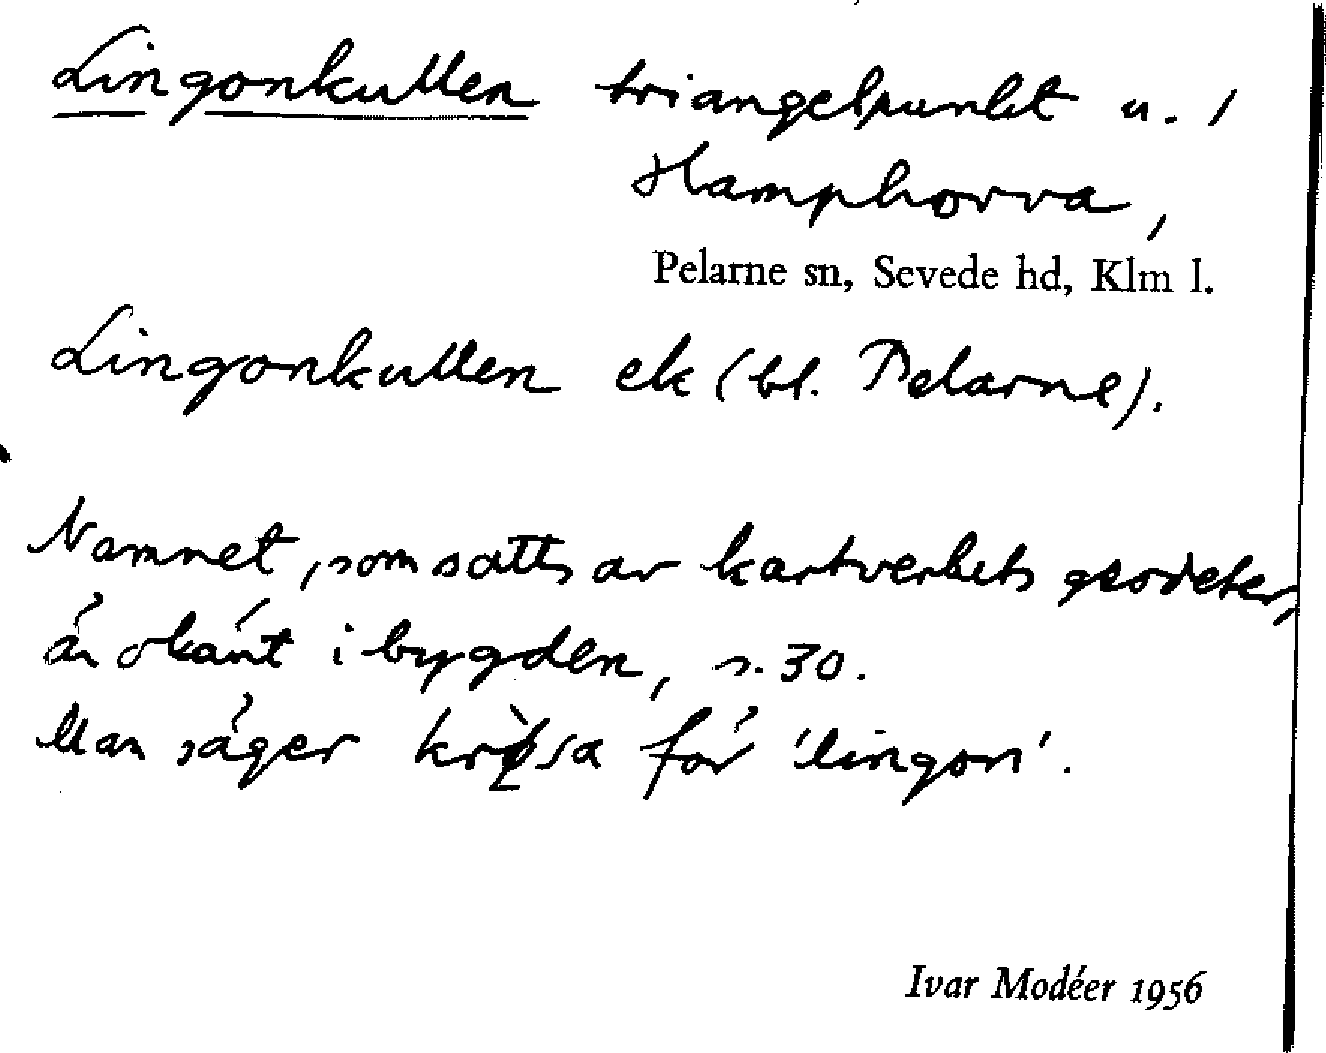 Lingonkullen triangelpunkt u. /
Hamphorva,
Pelarne sn, Sevede hd, Klm l.
Lingonkullen ek (bl. Pelarne).
Namnet, som satts av kartverkets geodeter,
är okänt i bygden, s. 30.
Man säger krø̀sa för 'lingon'.
Ivar Modéer 1956